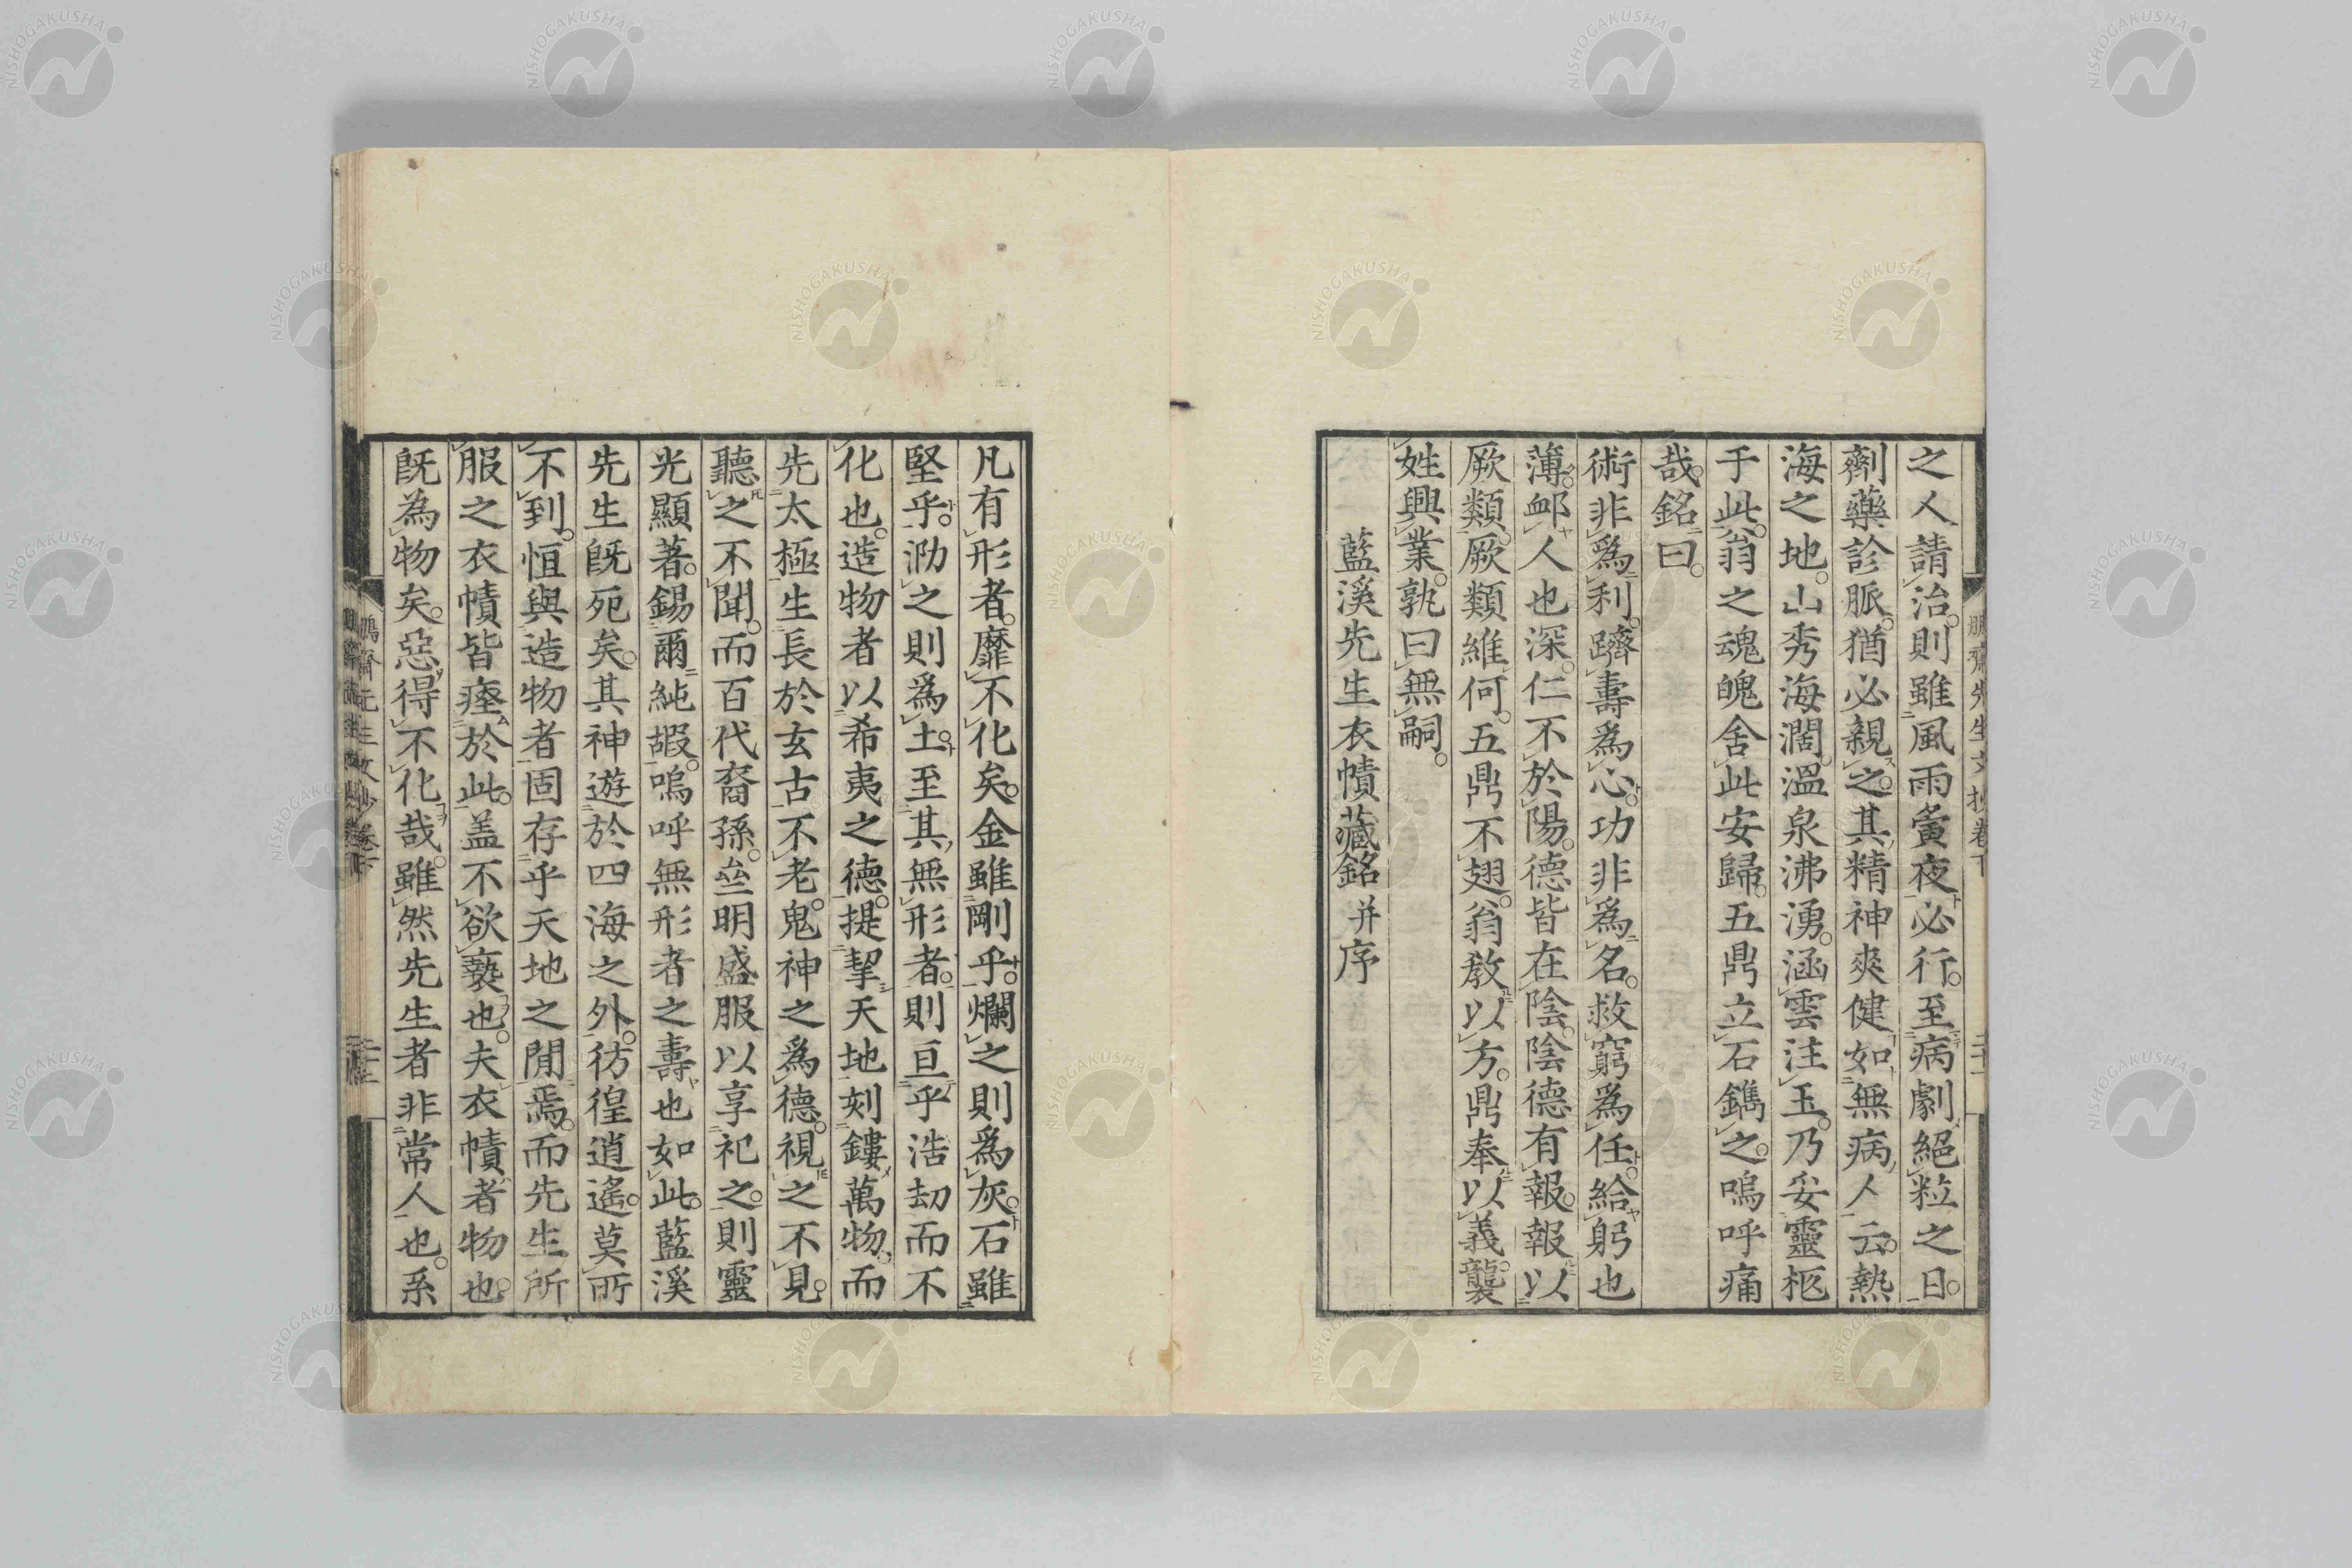 之人請治。則雖風雨夤夜必行。至病劇絕粒之日。
劑藥診脈。猶必親之。其精神爽健如無病人云。熱
海之地。山秀海濶。溫泉沸湧。涵雲注玉。乃妥靈柩
于此。翁之魂魄舍此安歸。五鼎立石鐫之。嗚呼痛
哉。銘曰。
術非爲利。躋壽爲心。功非爲名。救窮爲任。給躬也
薄。卹人也深。仁不於陽。德皆在陰。陰德有報。報以
厥類。厥類維何。五鼎不翅。翁教以方。鼎奉以義。襲
姓興業。孰曰無嗣。
藍溪先生衣幘藏銘并序
鵬齋先生文抄卷下
二十一
凡有形者。靡不化矣。金雖剛乎。爛之則爲灰。石雖
堅乎。泐之則爲土。至其無形者。則亘乎浩劫而不
化也。造物者以希夷之德。提挈天地刻鏤萬物。而
先太極生長於玄古不老。鬼神之爲德。視之不見。
聽之不聞。而百代裔孫。亝明盛服以享祀之。則靈
光顯著。錫爾純嘏。嗚呼無形者之壽也如此。藍溪
先生旣死矣。其神遊於四海之外。彷徨逍遙。莫所
不到。恒與造物者固存乎天地之閒焉。而先生所
服之衣幘皆瘞於此。盖不欲褻也。夫衣幘者物也。
旣為物矣。惡得不化哉。雖然先生者非常人也。系
鵬齋先生文抄卷下